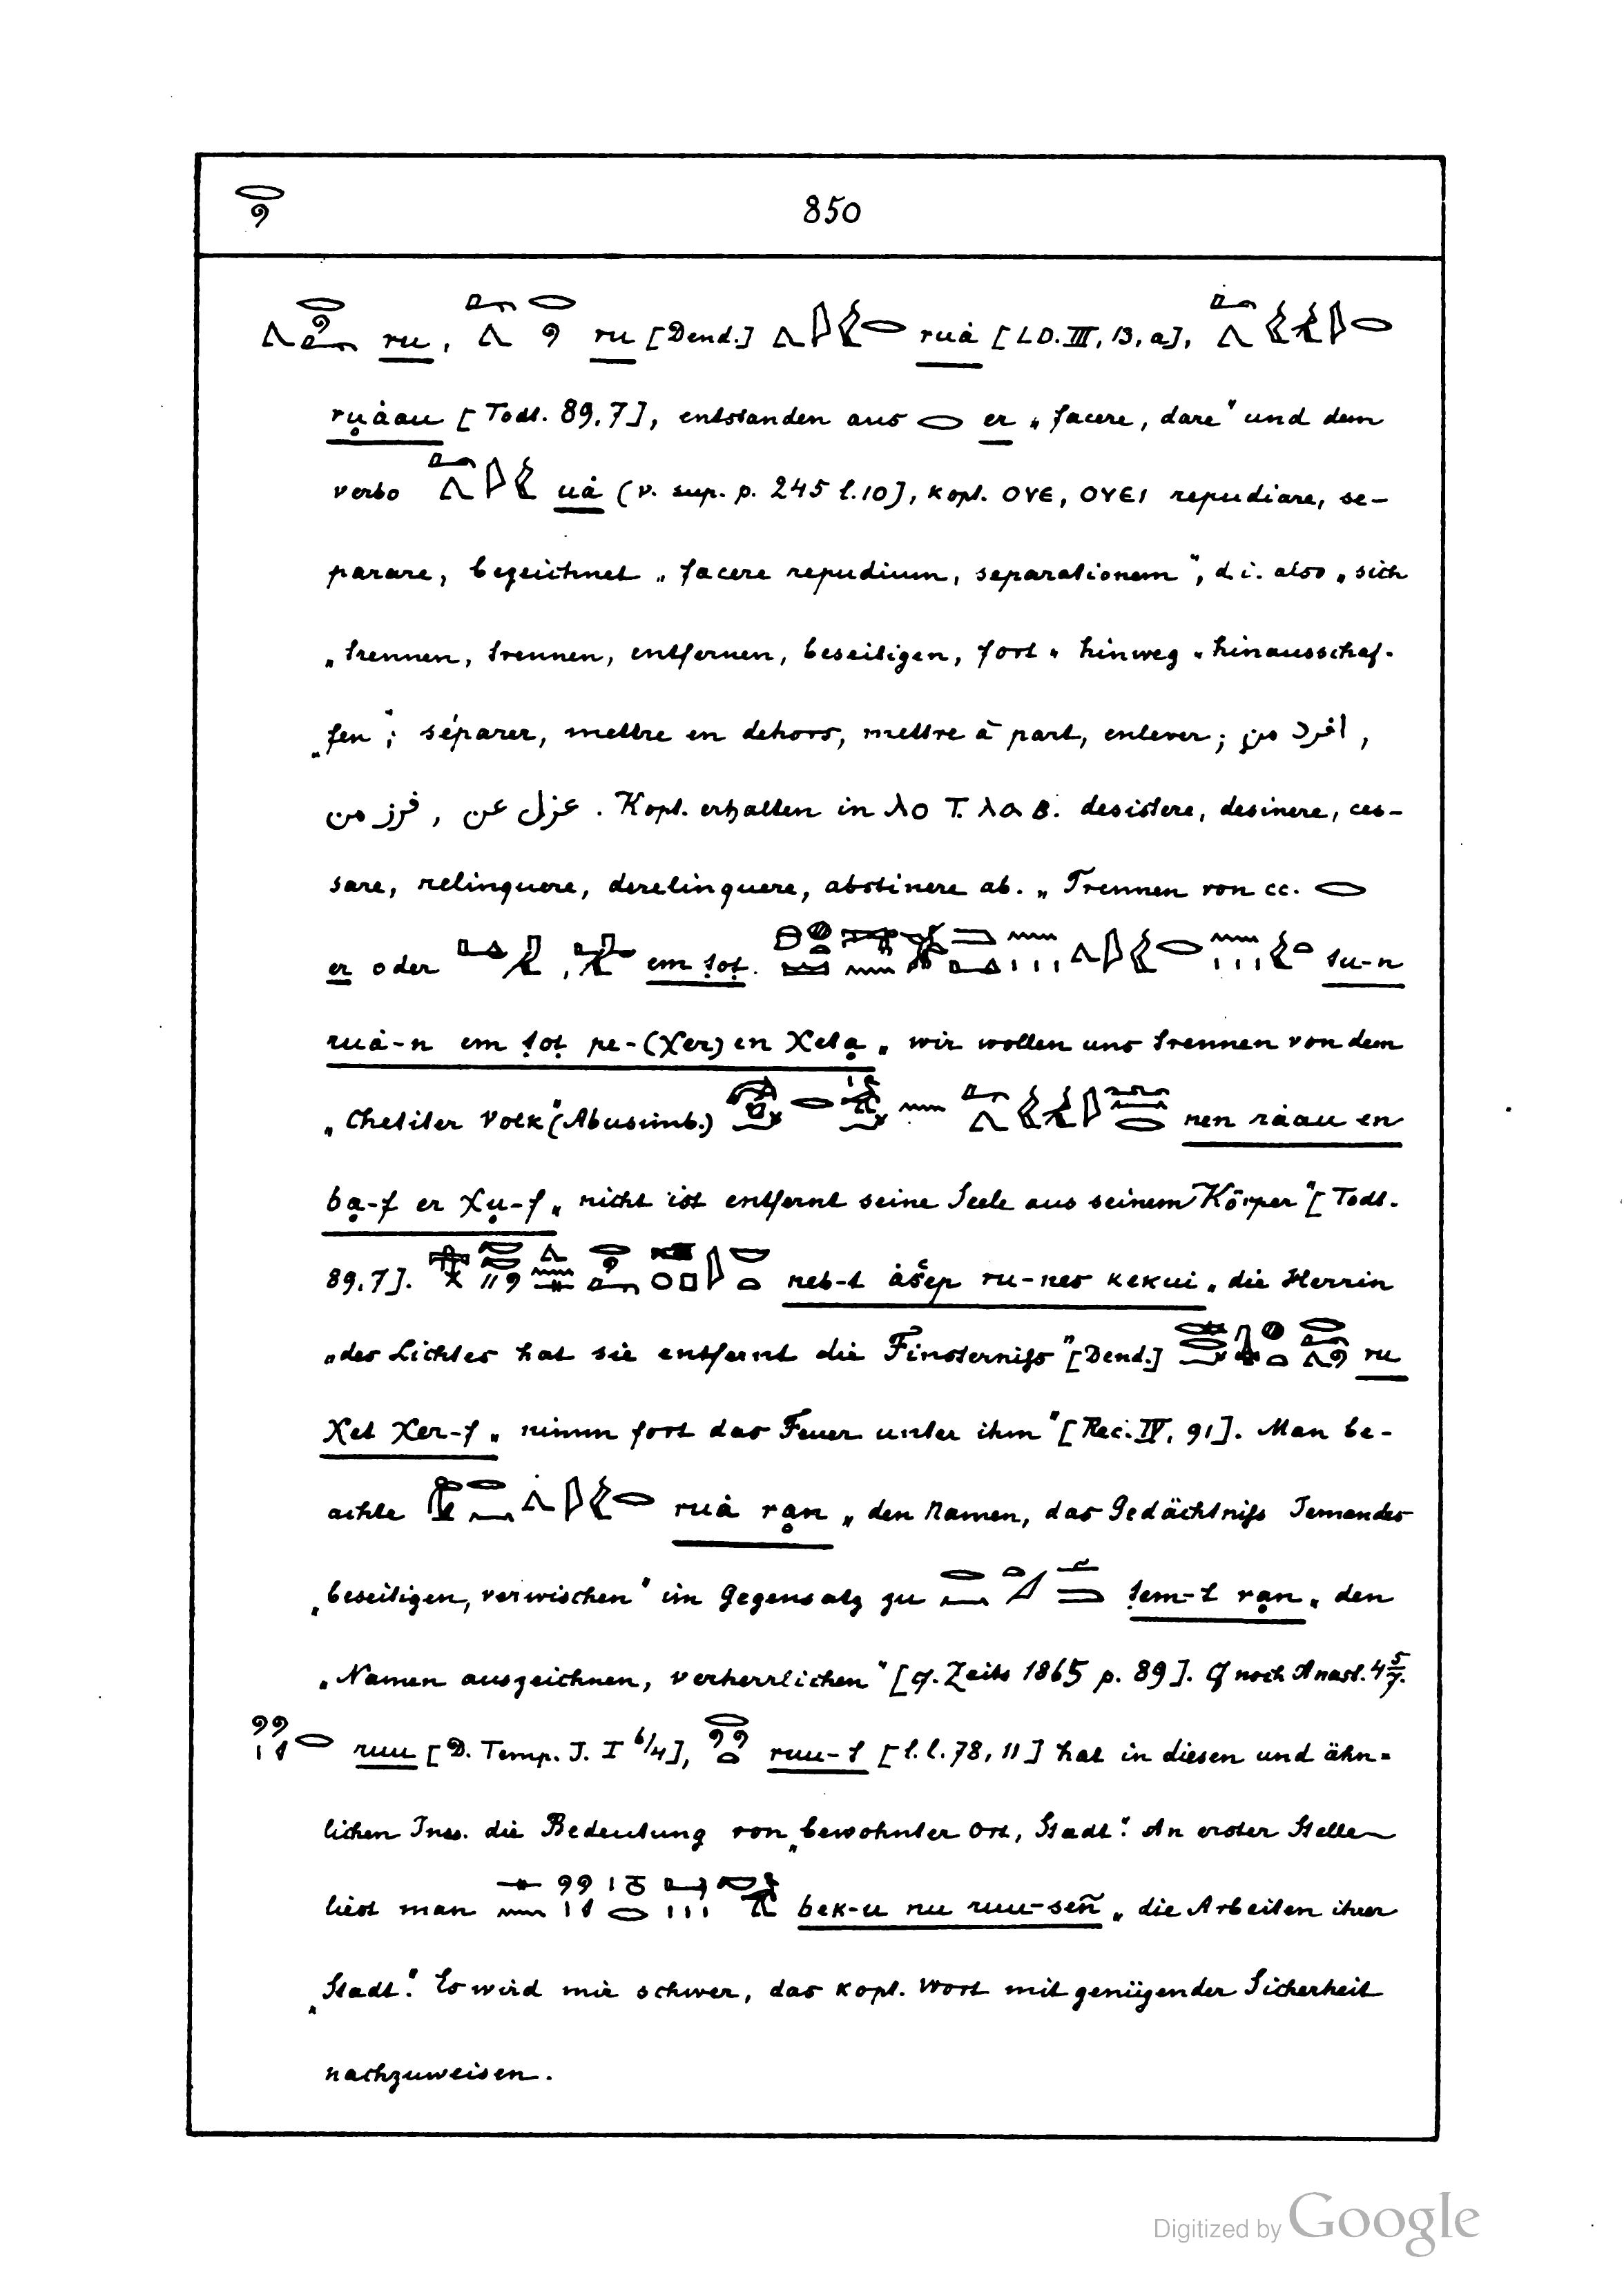 850
ru, ru [Dend.] ruȧ [LD. III, 13, a],
ru̥ȧau [Todt. 89,7], entstanden aus er „facere, dare“ und dem
verbo uȧ (v. sup. p. 245 l. 10], kopt. ⲟⲩⲉ, ⲟⲩⲉⲓ repudiare, se-
parare, bezeichnet „facere repudium, separationem“, d. i. also „sich
„trennen, trennen, entfernen, beseitigen, fort- hinweg- hinausschaf-
„fen“; séparer, mettre en dehors, mettre à part, enlever; افرد من ,
فرز من , عزل عن . Kopt. erhalten in ⲗⲟ T. ⲗⲁ B. desistere, desinere, ces-
sare, relinquere, derelinquere, abstinere ab. „Trennen von cc.
er oder em ṭoṭ. tu-n
ruȧ-n em ṭoṭ pe-(χer) en χeta̤ „wir wollen uns trennen von dem
„Chetiter Volk“ (Abusimb.) nen rȧau en
ba̤-f er χṳ-f „nicht ist entfernt seine Seele aus seinem Körper“ [Todt.
89,7]. neb-t ȧšep ru-nes kekui „die Herrin
„des Lichtes hat sie entfernt die Finsterniſs“ [Dend.] ru
χet χer-f „nimm fort das Feuer unter ihm“ [Rec. IV, 91]. Man be-
achte ruȧ ra̤n „den Namen, das Gedächtniſs Jemandes
„beseitigen, verwischen“ im Gegensatz zu ṭem-t ra̤n „den
„Namen auszeichnen, verherrlichen“ [cf. Zeits 1865 p. 89]. Cf noch Anast. 4 5/7.
ruu [D. Temp. J. I 6/4], ruu-t [l. l. 78, 11] hat in diesen und ähn=
lichen Inss. die Bedeutung von „bewohnter Ort, Stadt“. An erster Stelle
liest man bek-u nu ruu-señ „die Arbeiten ihrer
„Stadt“. Es wird mir schwer, das kopt. Wort mit genügender Sicherheit
nachzuweisen.
Digitized by Google